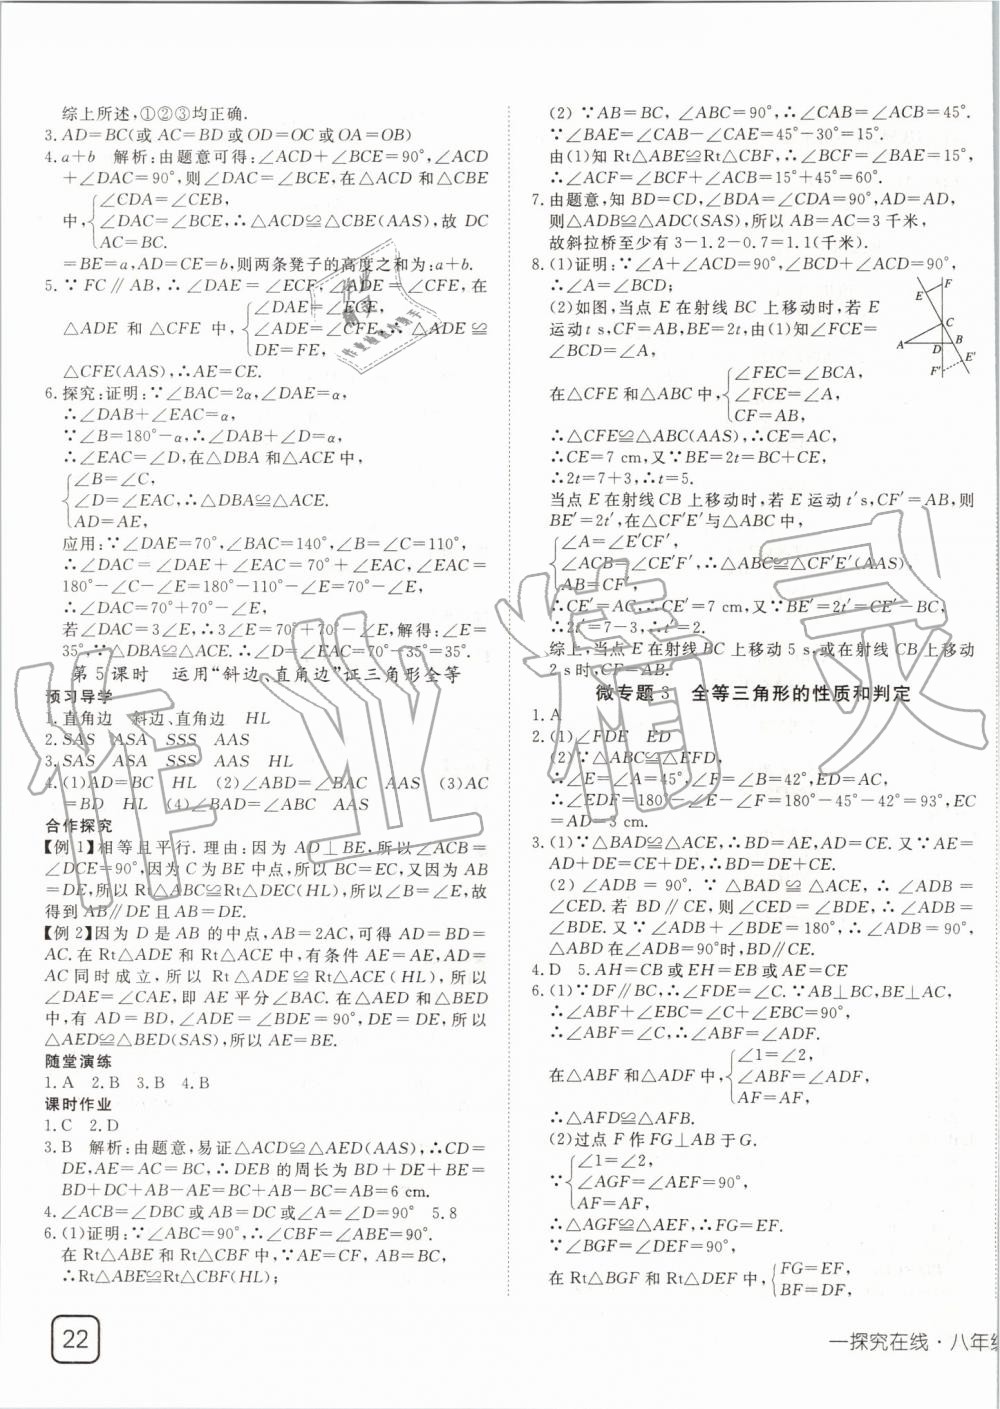 综上所述,①②③均正确.
3. AD=BC(或 AC=BD 或 OD=OC 或 OA=OB)
4. a+b 解析:由题意可得:∠ACD+∠BCE=90°,∠ACD
+∠DAC=90°,则∠DAC=∠BCE,在△ACD 和△CBE
∠CDA=∠CEB,
中,∠DAC=∠BCE,∴△ACD≌△CBE(AAS),故 DC
AC=BC.
=BE=a,AD=CE=b,则两条凳子的高度之和为:a+b.
5. ∵FC∥AB,∴∠DAE=∠ECF,∠ADE=∠CFE,在
∠DAE=∠ECF,
△ADE 和△CFE 中,∠ADE=∠CFE,∴△ADE≌
DE=FE,
△CFE(AAS),∴AE=CE.
6. 探究:证明:∵∠BAC=2α,∠DAE=α,
∴∠DAB+∠EAC=α,
∵∠B=180°-α,∴∠DAB+∠D=α,
∴∠EAC=∠D,在△DBA 和△ACE 中,
∠B=∠C,
∠D=∠EAC,∴△DBA≌△ACE.
AD=AE,
应用:∵∠DAE=70°,∠BAC=140°,∠B=∠C=110°,
∴∠DAC=∠DAE+∠EAC=70°+∠EAC,∠EAC=
180°-∠C-∠E=180°-110°-∠E=70°-∠E,
∴∠DAC=70°+70°-∠E,
若∠DAC=3∠E,∴3∠E=70°+70°-∠E,解得:∠E=
35°,∵△DBA≌△ACE,∴∠EAC=70°-35°=35°.
第 5 课时 运用“斜边、直角边”证三角形全等
预习导学
1. 直角边 斜边、直角边 HL
2. SAS ASA SSS AAS
3. SAS ASA SSS AAS HL
4. (1)AD=BC HL (2)∠ABD=∠BAC AAS (3)AC
=BD HL (4)∠BAD=∠ABC AAS
合作探究
【例 1】相等且平行. 理由:因为 AD⊥BE,所以∠ACB=
∠DCE=90°,因为 C 为 BE 中点,所以 BC=EC,又因为 AB
=DE,所以 Rt△ABC≌Rt△DEC(HL),所以∠B=∠E,故
得到 AB∥DE 且 AB=DE.
【例 2】因为 D 是 AB 的中点,AB=2AC,可得 AD=BD=
AC. 在 Rt△ADE 和 Rt△ACE 中,有条件 AE=AE,AD=
AC 同时成立,所以 Rt△ADE≌Rt△ACE(HL),所以
∠DAE=∠CAE,即 AE 平分∠BAC. 在△AED 和△BED
中,有 AD=BD,∠ADE=∠BDE=90°,DE=DE,所以
△AED≌△BED(SAS),所以 AE=BE.
随堂演练
1. A 2. B 3. B 4. B
课时作业
1. C 2. D
3. B 解析:由题意,易证△ACD≌△AED(AAS),∴CD=
DE,AE=AC=BC,∴DEB 的周长为 BD+DE+BE=
BD+DC+AB-AE=BC+AB-AE=AB=6 cm.
4. ∠ACB=∠DBC 或 AB=DC 或∠A=∠D=90° 5. 8
6. (1)证明:∵∠ABC=90°,∴∠CBF=∠ABE=90°.
在 Rt△ABE 和 Rt△CBF 中,∵AE=CF, AB=BC,
∴Rt△ABE≌Rt△CBF(HL);
22
(2) ∵AB=BC,∠ABC=90°,∴∠CAB=∠ACB=45°.
∵∠BAE=∠CAB-∠CAE=45°-30°=15°.
由(1)知 Rt△ABE≌Rt△CBF,∴∠BCF=∠BAE=15°,
∴∠ACF=∠BCF+∠ACB=15°+45°=60°.
7. 由题意,知 BD=CD,∠BDA=∠CDA=90°,AD=AD,
则△ADB≌△ADC(SAS),所以 AB=AC=3 千米,
故斜拉桥至少有 3-1.2-0.7=1.1(千米).
8. (1)证明:∵∠A+∠ACD=90°,∠BCD+∠ACD=90°,
∴∠A=∠BCD;
(2)如图,当点 E 在射线 BC 上移动时,若 E
运动 t s,CF=AB,BE=2t,由(1)知∠FCE=
∠BCD=∠A,
F
E
C
A
D
B
E′
F′
∠FEC=∠BCA,
在△CFE 和△ABC 中,∠FCE=∠A,
CF=AB,
∴△CFE≌△ABC(AAS),∴CE=AC,
∴CE=7 cm,又∵BE=2t=BC+CE,
∴2t=7+3,∴t=5.
当点 E 在射线 CB 上移动时,若 E 运动 t′s,CF′=AB,则
BE′=2t′,在△CF′E′与△ABC 中,
∠A=∠E′CF′,
∠ACB=∠CE′F′,∴△ABC≌△CF′E′(AAS),
AB=CF′,
∴CE′=AC,∴CE′=7 cm,又∵BE′=2t′=CE′-BC,
∴2t′=7-3,∴t′=2.
综上,当点 E 在射线 CB 上移动 5 s,或当点 E 在射线 CB 上移动
2 s 时,CF=AB.
微专题 3 全等三角形的性质和判定
1. A
2. (1)∠FDE ED
(2)∵△ABC≌△EFD,
∴∠E=∠A=45°,∠F=∠B=42°,ED=AC,
∴∠EDF=180°-∠E-∠F=180°-45°-42°=93°,EC
=AD=3 cm.
3. (1)∵△BAD≌△ACE,∴BD=AE,AD=CE. 又∵AE=
AD+DE=CE+DE,∴BD=DE+CE.
(2) ∠ADB=90°. ∵△BAD≌△ACE,∴∠ADB=
∠CED. 若 BD∥CE,则∠CED=∠BDE,∴∠ADB=
∠BDE. 又∵∠ADB+∠BDE=180°,∴∠ADB=90°,
△ABD 在∠ADB=90°时,BD∥CE.
4. D 5. AH=CB 或 EH=EB 或 AE=CE
6. (1)∵DF∥BC,∴∠FDE=∠C. ∵AB⊥BC,BE⊥AC,
∴∠ABF+∠EBC=∠C+∠EBC=90°,
∴∠ABF=∠C,∴∠ABF=∠ADF.
∠1=∠2,
在△ABF 和△ADF 中,∠ABF=∠ADF,
AF=AF,
∴△AFD≌△AFB.
(2)过点 F 作 FG⊥AB 于 G.
∠1=∠2,
∵∠AGF=∠AEF=90°,
AF=AF,
∴△AGF≌△AEF,∴FG=EF.
∵∠BGF=∠DEF=90°,
在 Rt△BGF 和 Rt△DEF 中,FG=EF,
BF=DF,
一探究在线·八年级
作业精灵